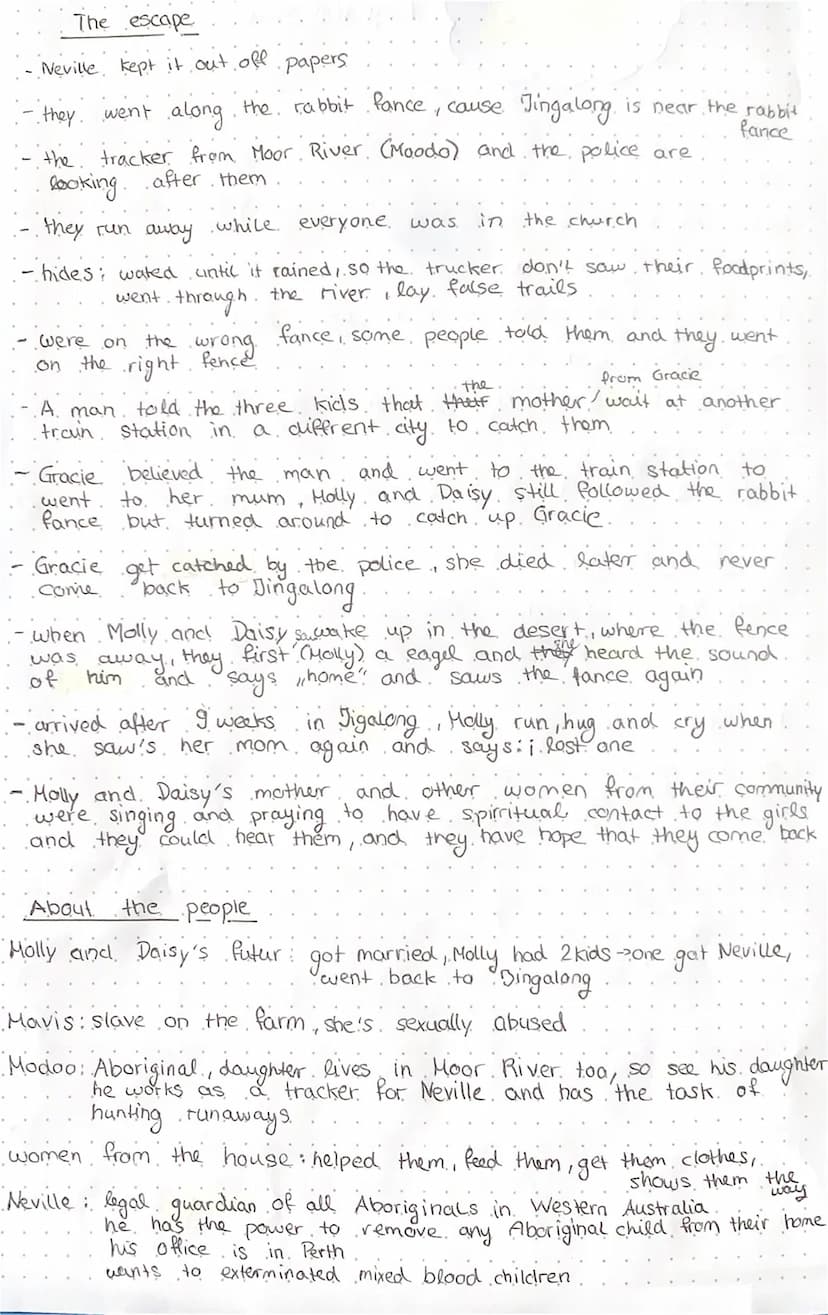 The escape
- Neville kept it out off papers
- they went along the rabbit fance, cause Jingalong is near the rabbit
fance
- the tracker from Moor River (Moodo) and the police are
looking after them
- they run away while everyone was in the church
- hides: wated until it rained, so the trucker don't saw their foodprints,
went through the river, lay false trails
- were on the wrong fance, some people told them and they went
on the right fence
- A man told the three kids that the mother / from Gracie wait at another
train station in a diffrent city to catch them
- Gracie believed the man and went to the train station to
went to her mum, Molly and Daisy still followed the rabbit
fance but turned around to catch up Gracie
- Gracie get catched by the police, she died later and never
come back to Jingalong
- when Molly and Daisy wake up in the desert, where the fence
was away, they first saw (Molly) a eagel and she heard the sound
of him and says „home" and saws the fance again
- arrived after 9 weeks in Jigalong, Molly run, hug and cry when
she saw's her mom again and says: i lost one
- Molly and Daisy's mother and other women from their community
were singing and praying to have spirritual contact to the girls
and they could hear them, and they have hope that they come back
About the people
Molly and Daisy's futur: got married, Molly had 2 kids → one gat Neville,
went back to Jingalong
Mavis: slave on the farm, she's sexually abused
Modoo: Aboriginal, daughter lives in Moor River too, so see his daughter
he works as a tracker for Neville and has the task of
hunting runaways
women from the house: helped them, feed them, get them clothes,
shows them the way
Neville: legal guardian of all Aboriginals in Western Australia
he has the power to remove any Aboriginal child from their home
his office is in Perth
wants to exterminated mixed blood children